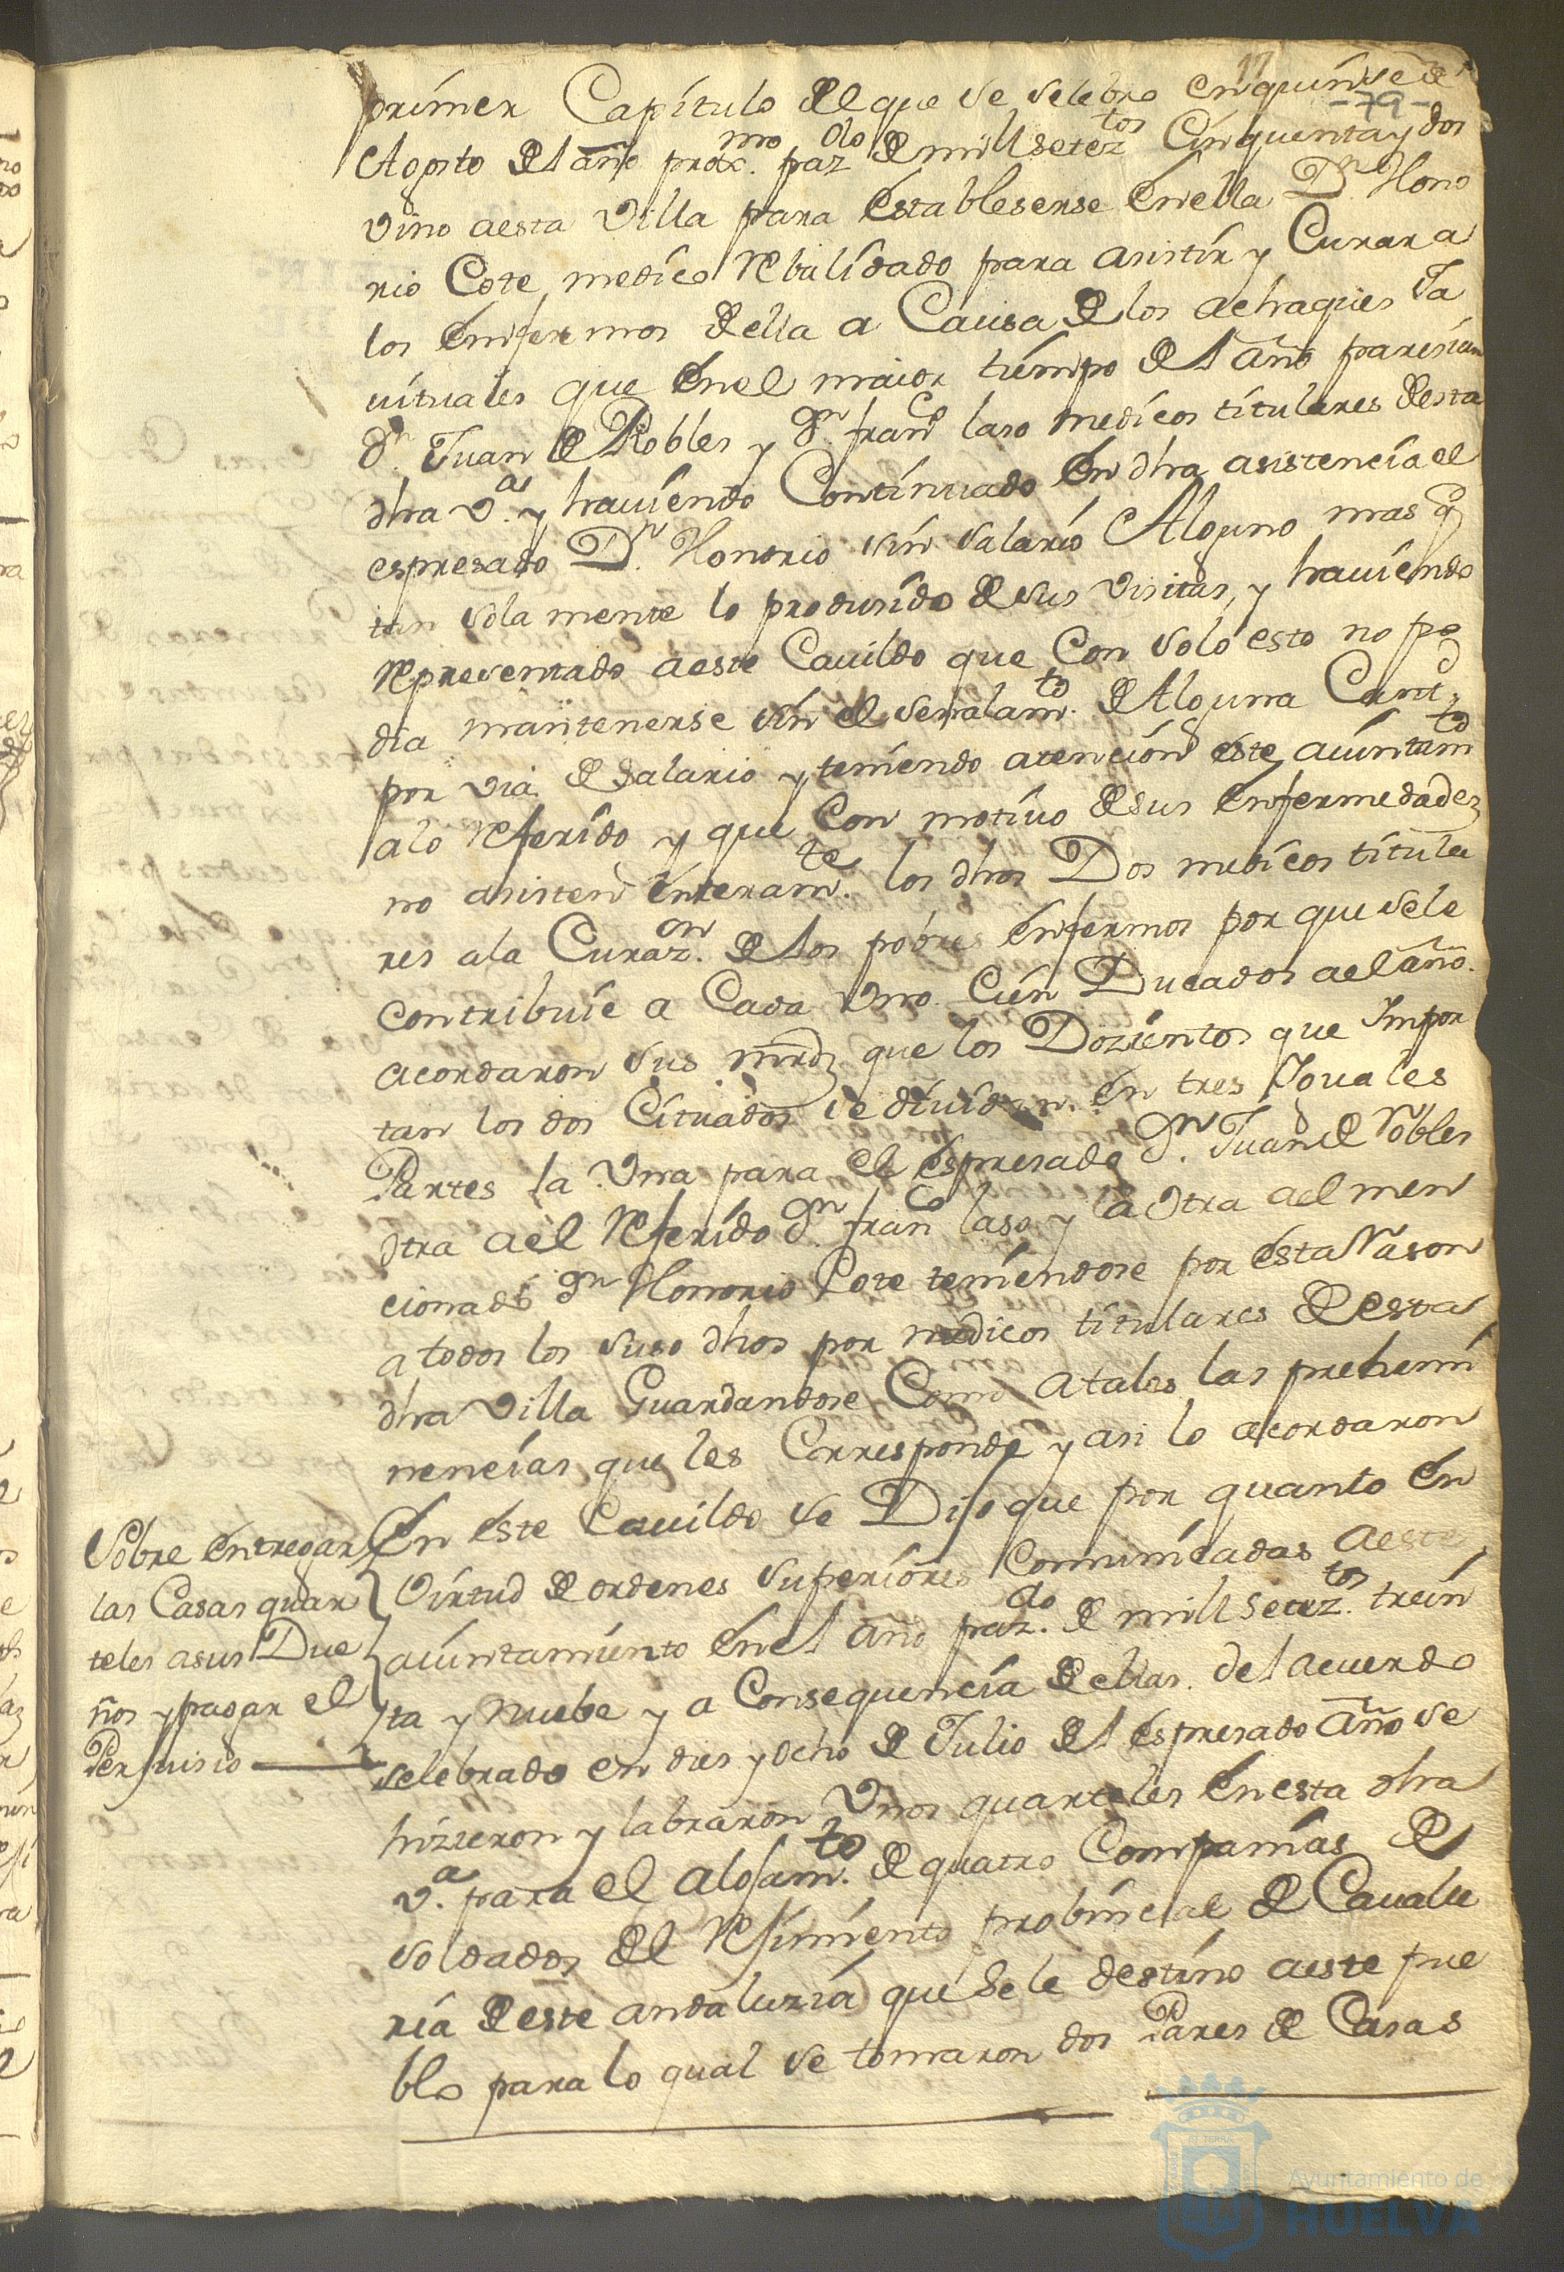 17
-79-
primer Capitulo del que se selebro en quinse de
Agosto del año prox.mo paz.do de mill setez.tos Cinquenta y dos
vino a esta Villa para establesense en ella D.n Hono
rio Cote medico Rebalidado para asistir y Curar a
los enfermos de ella a Causa de los achaques
vituales que en el maior tiempo del año paresian
d.n Juan de Robles y d.n fran.co laso medicos titulares desta
dha V.a y haviendo Continuado en dha asistencia el
espresado D.n Honorio sin salario Alguno mas q
tan sola mente lo produsido de sus visitas, y haviendo
Representado a este Cavildo que Con solo esto no po
dia mantenerse sin el señalam.to de Alguna Cant.
por via de salario y teniendo atencion este aiuntam.to
a lo Referido y que Con motivo de sus enfermedadez
no asisten enteram.te los dhos Dos medicos titula
res a la Curaz.on de los pobres enfermos por que se le
contribuie a Cada Uno Cien Ducados a el año.
acordaron sus mrdz que los Dozientos que Impor
tan los dos Cituados se dividan en tres Iguales
Partes la Una para el espresado d.n Juan de Robles
otra a el Referido d.n fran.co laso y la otra a el men
cionado d.n Honorio Cote teniendose por esta Rason
a todos los suso dhos por medicos titulares de esta
dha Villa Guardandose Como a tales las prehemi
nencias que les Corresponde y asi lo acordaron
Sobre entregar
las Casas quar
teles a sus Due
ños y pagar el
Perjuisio
En este Cavildo se Dijo que por quanto en
virtud de ordenes superiores Comunicadas a este
aiuntamiento en el año paz.do de mill setez.tos trein
ta y nuebe y a Consequencia de ellas del acuerdo
selebrado en dies y ocho de Julio del espresado año se
hizieron y labraron Unos quarteles en esta dha
V.a para el alojam.to de quatro Compañias de
soldados del Rejimiento probincial de Cavalle
ria de este andaluzia que se le destino a este pue
blo para lo qual se tomaron dos Pares de Casas
Ayuntamiento de
HUELVA